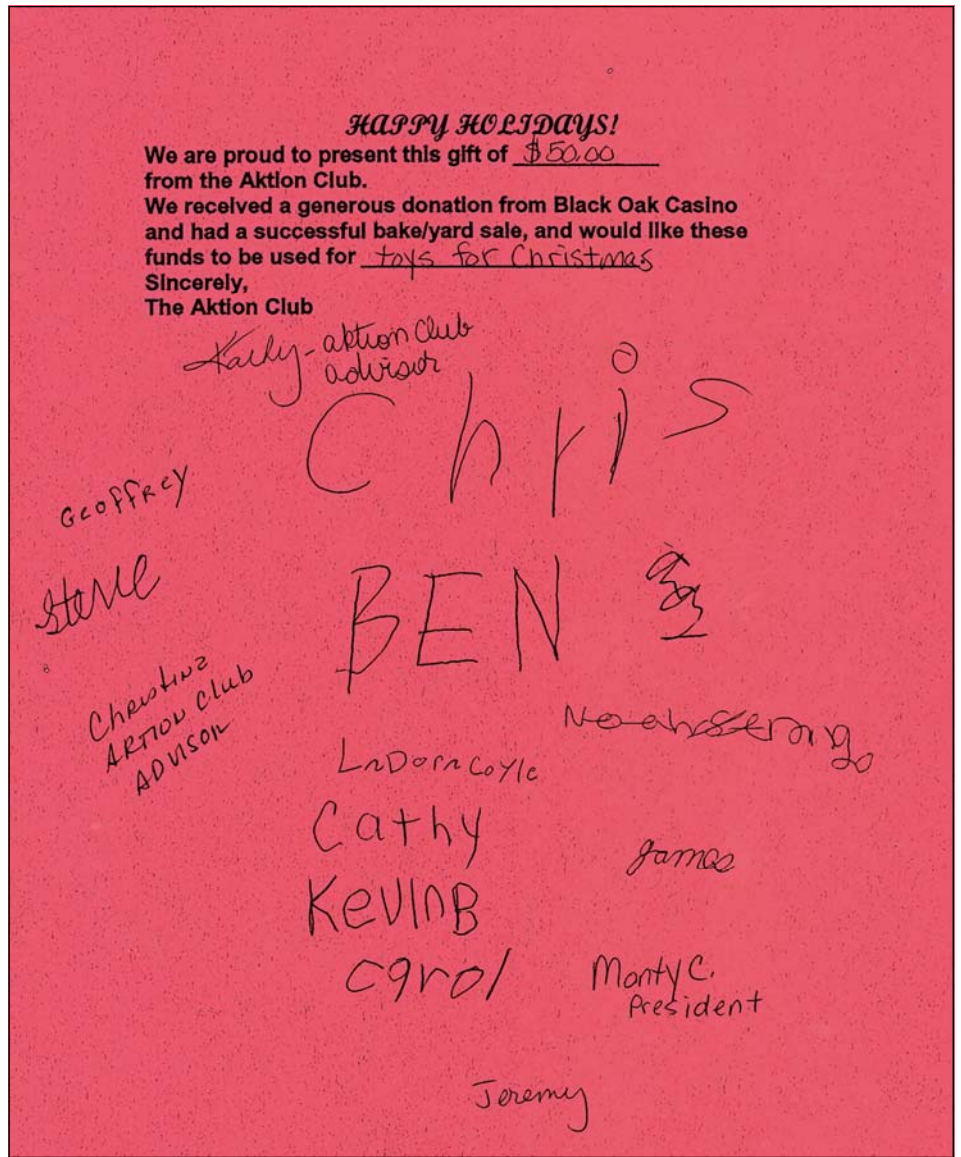 HAPPY HOLIDAYS!
We are proud to present this gift of $50.00
from the Aktion Club.
We received a generous donation from Black Oak Casino
and had a successful bake/yard sale, and would like these
funds to be used for toys for Christmas
Sincerely,
The Aktion Club
Kathy - aktion Club
advisor
Chris
Geoffrey
Steve
BEN
Christina
AKTION Club
ADVISOR
LaDorna Coyle
Cathy
James
KevinB
Carol
Monty C.
President
Jeremy